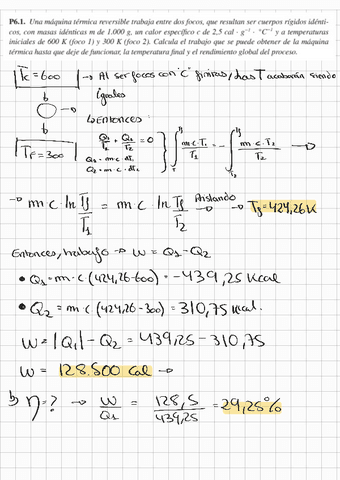 P6.1. Una máquina térmica reversible trabaja entre dos focos, que resultan ser cuerpos rígidos idénti-
cos, con masas idénticas m de 1.000 g, un calor específico c de 2,5 cal · g⁻¹ · °C⁻¹ y a temperaturas
iniciales de 600 K (foco 1) y 300 K (foco 2). Calcula el trabajo que se puede obtener de la máquina
térmica hasta que deje de funcionar, la temperatura final y el rendimiento global del proceso.
Tc = 600 → Al ser focos con "C" finitas, las T acabarán siendo
iguales
Entonces
Q1/T1 + Q2/T2 = 0
Q1 = m·c·dT1
Q2 = m·c·dT2
∫ m·c·T1/T1 = - ∫ m·c·T2/T2 →
TF = 300
→ m c · ln Tf/T1 = m c · ln Tf/T2 Aislando → Tf = 424,26 K
Entonces, trabajo → W = Q1 - Q2
• Q1 = m·c (424,26-600) = -439,25 Kcal
• Q2 = m·c (424,26-300) = 310,75 Kcal.
W = |Q1| - Q2 = 439,25 - 310,75
W = 128.500 Cal →
b) η = ? → W/Q1 = 128,5/439,25 = 29,25%